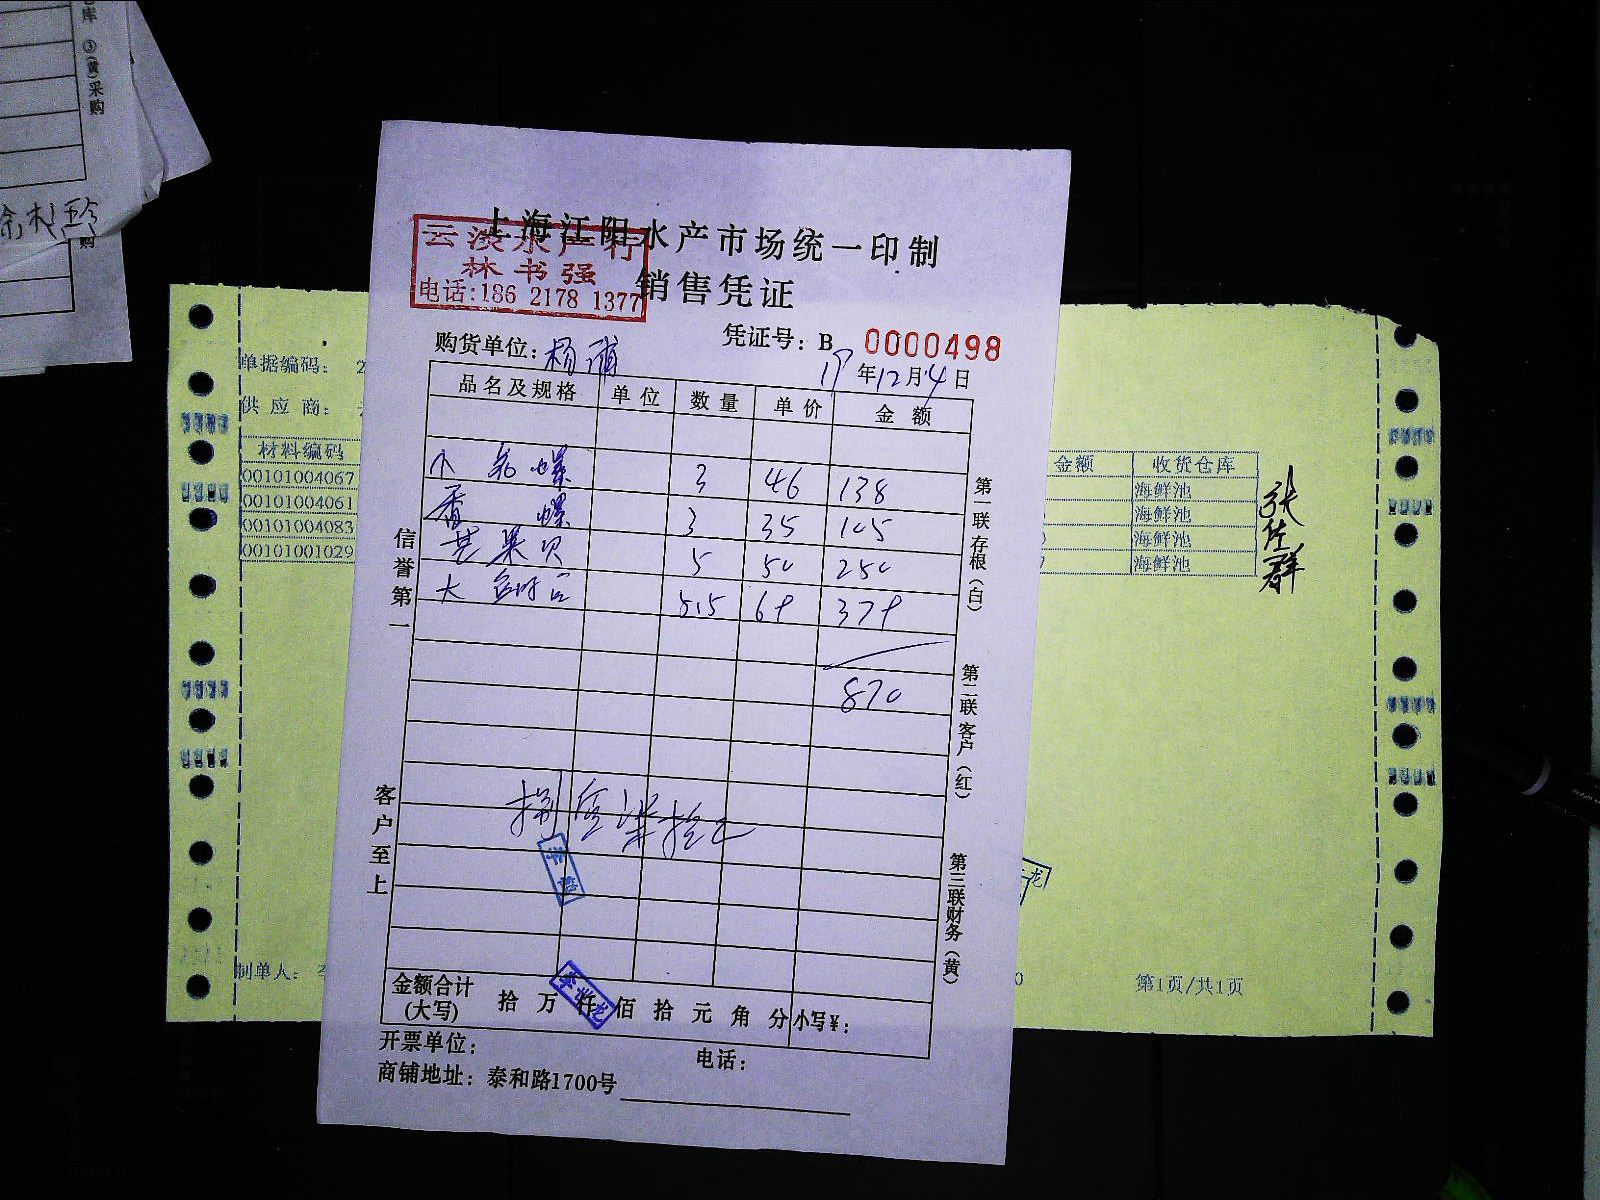 库 ③(黄)采购
购
上海江阳水产市场统一印制
销售凭证
云淡水产行
林书强
电话:186 2178 1377
凭证号: B 0000498
购货单位: 杨浦
19年12月4日
品名及规格 单位 数量 单价 金额
小鲍螺 3 46 138
香螺 3 35 105
芒果贝 5 50 250
大 5.5 69 379
870
捌佰柒拾元
信誉第一
客户至上
第一联存根(白)
第二联客户(红)
第三联财务(黄)
金额合计(大写) 拾 万 仟 佰 拾 元 角 分 小写¥:
李世龙
开票单位:
电话:
商铺地址: 泰和路1700号
单据编码: 2
供应商:
材料编码
00101004067
00101004061
00101004083
00101001029
金额 收货仓库
海鲜池
海鲜池
海鲜池
海鲜池
张佐群
制单人: 李
第1页/共1页